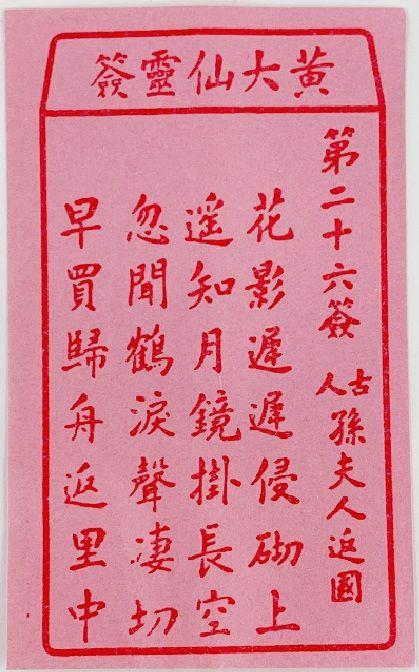 黃大仙靈簽
第二十六簽 古人 孫夫人返國
花影遲遲侵砌上
遥知月鏡掛長空
忽聞鶴淚聲凄切
早買歸舟返里中